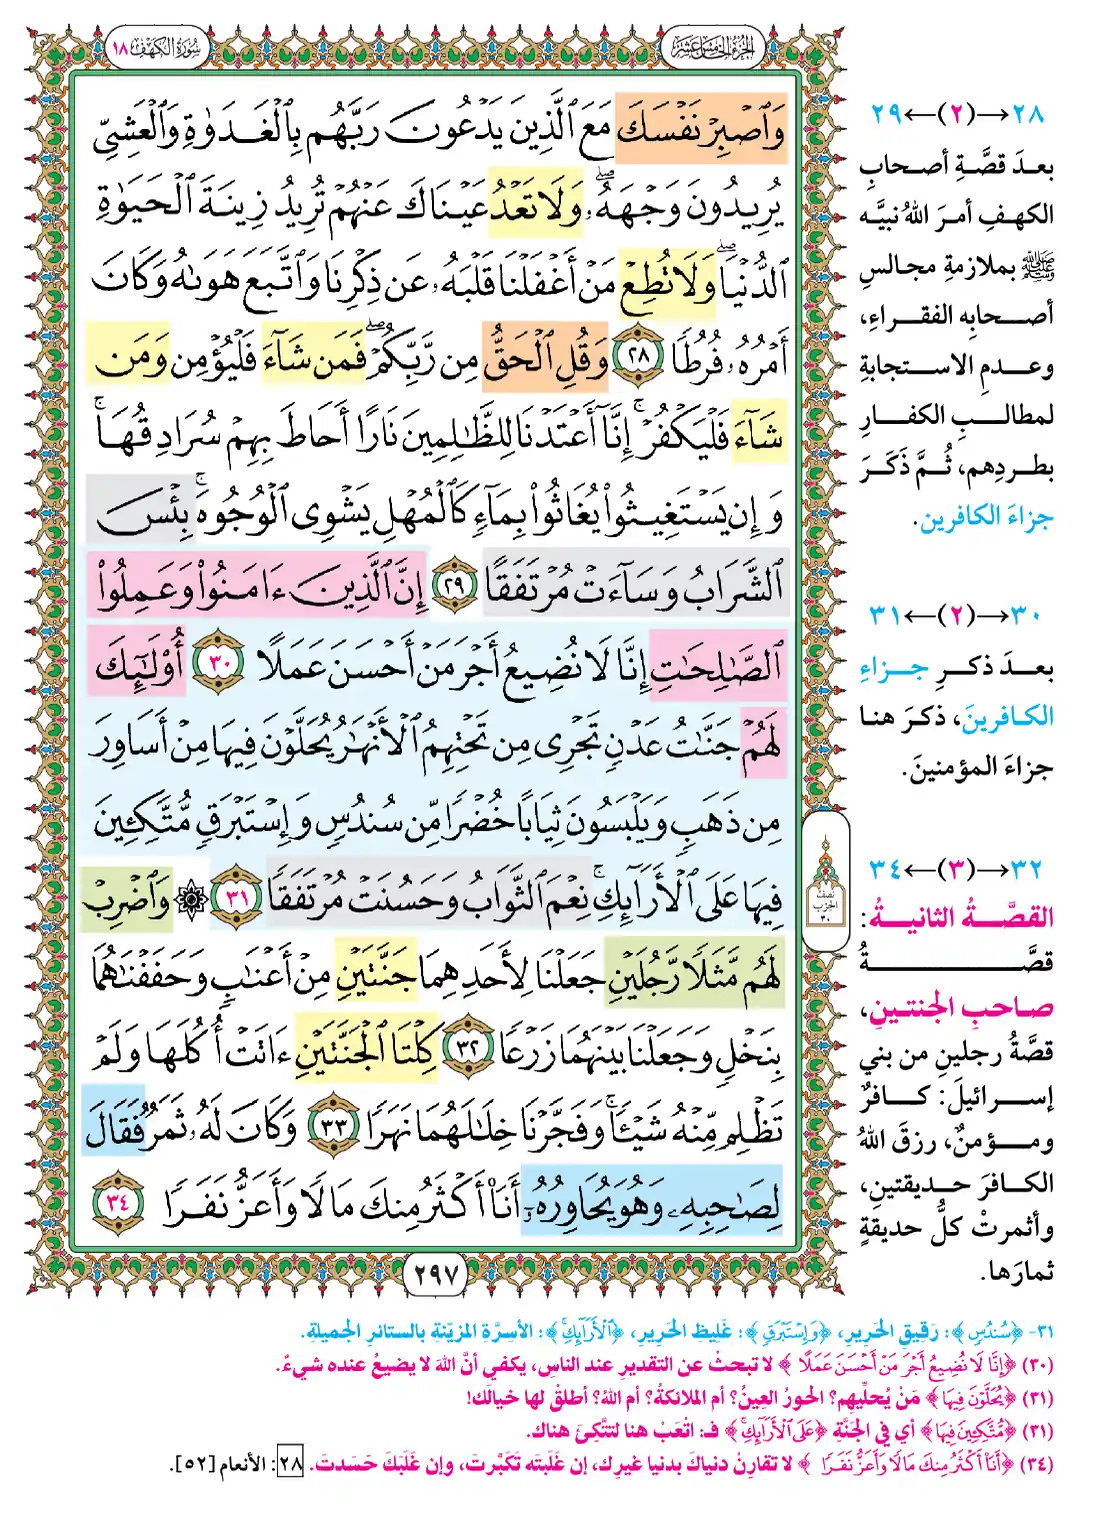 الجزء الخامس عشر
سورة الكهف ١٨
وَٱصۡبِرۡ نَفۡسَكَ مَعَ ٱلَّذِينَ يَدۡعُونَ رَبَّهُم بِٱلۡغَدَوٰةِ وَٱلۡعَشِيِّ
يُرِيدُونَ وَجۡهَهُۥۖ وَلَا تَعۡدُ عَيۡنَاكَ عَنۡهُمۡ تُرِيدُ زِينَةَ ٱلۡحَيَوٰةِ
ٱلدُّنۡيَاۖ وَلَا تُطِعۡ مَنۡ أَغۡفَلۡنَا قَلۡبَهُۥ عَن ذِكۡرِنَا وَٱتَّبَعَ هَوَىٰهُ وَكَانَ
أَمۡرُهُۥ فُرُطٗا ٢٨ وَقُلِ ٱلۡحَقُّ مِن رَّبِّكُمۡۖ فَمَن شَآءَ فَلۡيُؤۡمِن وَمَن
شَآءَ فَلۡيَكۡفُرۡۚ إِنَّآ أَعۡتَدۡنَا لِلظَّٰلِمِينَ نَارًا أَحَاطَ بِهِمۡ سُرَادِقُهَاۚ
وَإِن يَسۡتَغِيثُواْ يُغَاثُواْ بِمَآءٖ كَٱلۡمُهۡلِ يَشۡوِي ٱلۡوُجُوهَۚ بِئۡسَ
ٱلشَّرَابُ وَسَآءَتۡ مُرۡتَفَقًا ٢٩ إِنَّ ٱلَّذِينَ ءَامَنُواْ وَعَمِلُواْ
ٱلصَّٰلِحَٰتِ إِنَّا لَا نُضِيعُ أَجۡرَ مَنۡ أَحۡسَنَ عَمَلًا ٣٠ أُوْلَٰٓئِكَ
لَهُمۡ جَنَّٰتُ عَدۡنٖ تَجۡرِي مِن تَحۡتِهِمُ ٱلۡأَنۡهَٰرُ يُحَلَّوۡنَ فِيهَا مِنۡ أَسَاوِرَ
مِن ذَهَبٖ وَيَلۡبَسُونَ ثِيَابًا خُضۡرٗا مِّن سُندُسٖ وَإِسۡتَبۡرَقٖ مُّتَّكِـِٔينَ
فِيهَا عَلَى ٱلۡأَرَآئِكِۚ نِعۡمَ ٱلثَّوَابُ وَحَسُنَتۡ مُرۡتَفَقٗا ٣١ ۞ وَٱضۡرِبۡ
لَهُم مَّثَلٗا رَّجُلَيۡنِ جَعَلۡنَا لِأَحَدِهِمَا جَنَّتَيۡنِ مِنۡ أَعۡنَٰبٖ وَحَفَفۡنَٰهُمَا
بِنَخۡلٖ وَجَعَلۡنَا بَيۡنَهُمَا زَرۡعٗا ٣٢ كِلۡتَا ٱلۡجَنَّتَيۡنِ ءَاتَتۡ أُكُلَهَا وَلَمۡ
تَظۡلِم مِّنۡهُ شَيۡـٔٗاۚ وَفَجَّرۡنَا خِلَٰلَهُمَا نَهَرٗا ٣٣ وَكَانَ لَهُۥ ثَمَرٞ فَقَالَ
لِصَٰحِبِهِۦ وَهُوَ يُحَاوِرُهُۥٓ أَنَا۠ أَكۡثَرُ مِنكَ مَالٗا وَأَعَزُّ نَفَرٗا ٣٤
٢٩٧
نصف
الحزب
٣٠
٢٨→(٢)←٢٩
بعدَ قصَّةِ أصحابِ
الكهفِ أمرَ اللهُ نبيَّه
ﷺ بملازمةِ مجالسِ
أصحابِه الفقراءِ،
وعدمِ الاستجابةِ
لمطالبِ الكفارِ
بطردِهم، ثُمَّ ذَكَرَ
جزاءَ الكافرين.
٣٠→(٢)←٣١
بعدَ ذكرِ جزاءِ
الكافرينَ، ذكرَ هنا
جزاءَ المؤمنينَ.
٣٢→(٣)←٣٤
القصَّةُ الثانيةُ:
قصَّةُ
صاحبِ الجنتينِ،
قصَّةُ رجلينِ من بني
إسرائيلَ: كافرٌ
ومؤمنٌ، رزقَ اللهُ
الكافرَ حديقتينِ،
وأثمرتْ كلُّ حديقةٍ
ثمارَها.
٣١- ﴿سُندُسٖ﴾: رَقِيقِ الحَرِيرِ، ﴿وَإِسۡتَبۡرَقٖ﴾: غَلِيظِ الحَرِيرِ، ﴿ٱلۡأَرَآئِكِۚ﴾: الأسِرَّةِ المزيّنةِ بالستائرِ الجميلةِ.
(٣٠) ﴿إِنَّا لَا نُضِيعُ أَجۡرَ مَنۡ أَحۡسَنَ عَمَلًا﴾ لا تبحثْ عن التقديرِ عند الناسِ، يكفي أنَّ اللهَ لا يضيعُ عنده شيءٌ.
(٣١) ﴿يُحَلَّوۡنَ فِيهَا﴾ مَنْ يُحلِّيهِم؟ الحورُ العِينُ؟ أم الملائكةُ؟ أم اللهُ؟ أطلقْ لها خيالَك!
(٣١) ﴿مُّتَّكِـِٔينَ فِيهَا﴾ أي في الجَنَّةِ ﴿عَلَى ٱلۡأَرَآئِكِۚ﴾ فـ: اتْعَبْ هنا لتتَّكِئَ هناك.
(٣٤) ﴿أَنَا۠ أَكۡثَرُ مِنكَ مَالٗا وَأَعَزُّ نَفَرٗا﴾ لا تقارِنْ دنياكَ بدنيا غيرِك، إن غلَبتَه تَكَبَّرتَ، وإن غلَبَكَ حَسَدتَ. ٢٨: الأنعام [٥٢].